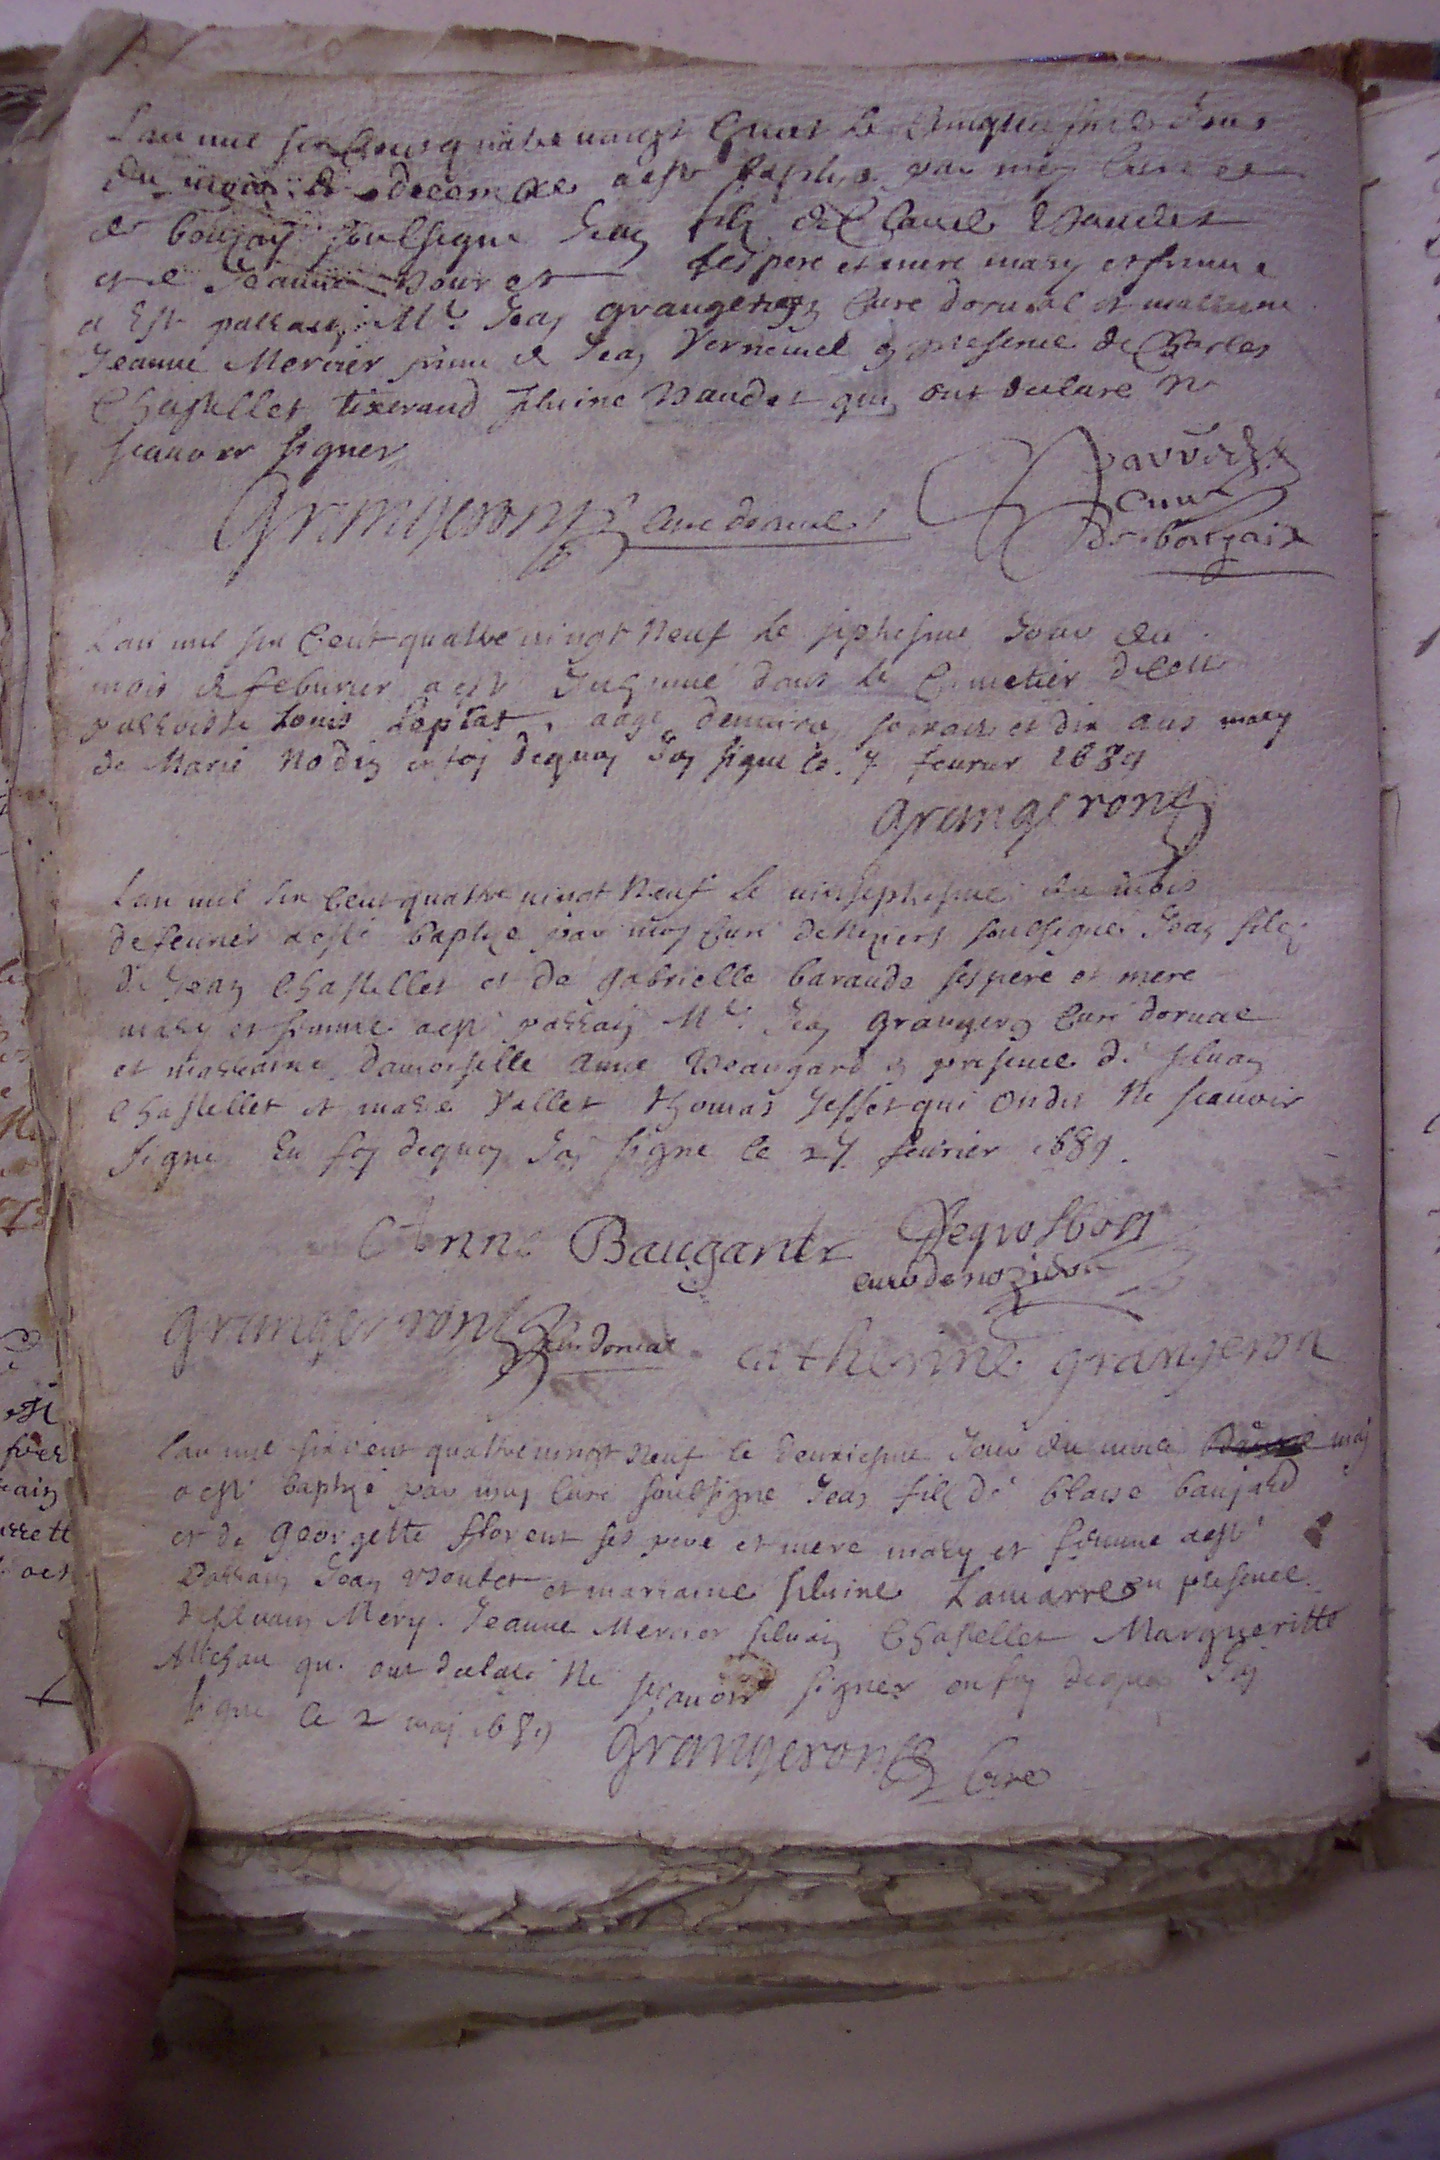 Lan mil six Cens quatre vingt huit le Cinquiesme Jour
du mois de decembre a este baptise par moy Curé
de bougay soubsigne Jean filz de Claude Daudet
et de Jeanne ses pere et mere mary et femme
a Est parrain Mr. Jean grangeron Cure dorval et marraine
Jeanne Mercier femme de Jean Verneuil en presence de Charles
Chastellet tixerand silvine Daudet qui ont declare ne
scauoir signer
Grangeron Cure dorual
Cure
de bougaix
Lan mil six Cent quatre vingt Neuf le septiesme Jour du
mois de feburier a este Inhumé dans le Cimetier de cette
parroisse Louis Leplat, aage denuiron soixante et dix ans mary
de Marie Nodin en foy dequoy Jay signe le 7 feurier 1689
grangeron
Lan mil six Cent quatre vingt Neuf le vinseptiesme du mois
de feurier a esté baptize par moy Curé de Noziers soubsigné Jean filz
de Jean Chastellet et de gabrielle baraude ses pere et mere
mary et femme a esté parrain Mr. Jean grangeron Curé dorual
et marraine damoiselle Anne Beaugard en presence de siluain
Chastellet et marie Vallet thomas Jesset qui ondit Ne scauoir
signe En foy dequoy Jay signe le 27 feurier 1689.
Anne Baugard
curé de nozieres
grangeron Cure dorual catherine grangeron
Lan mil six cent quatre vingt Neuf le deuxiesme Jour du mois may
a esté baptizé par moy Cure soubsigne Jean filz de blaise baujard
et de georgette florent ses pere et mere mary et femme a esté
Parrain Jean Boutet et marraine siluine Lamarre en presence
de siluain Mery. Jeanne Mercier siluain Chastellet Margueritte
Michau qui ont declaré Ne scauoir signer en foy dequoy Jay
signe le 2 may 1689 grangeron Cure